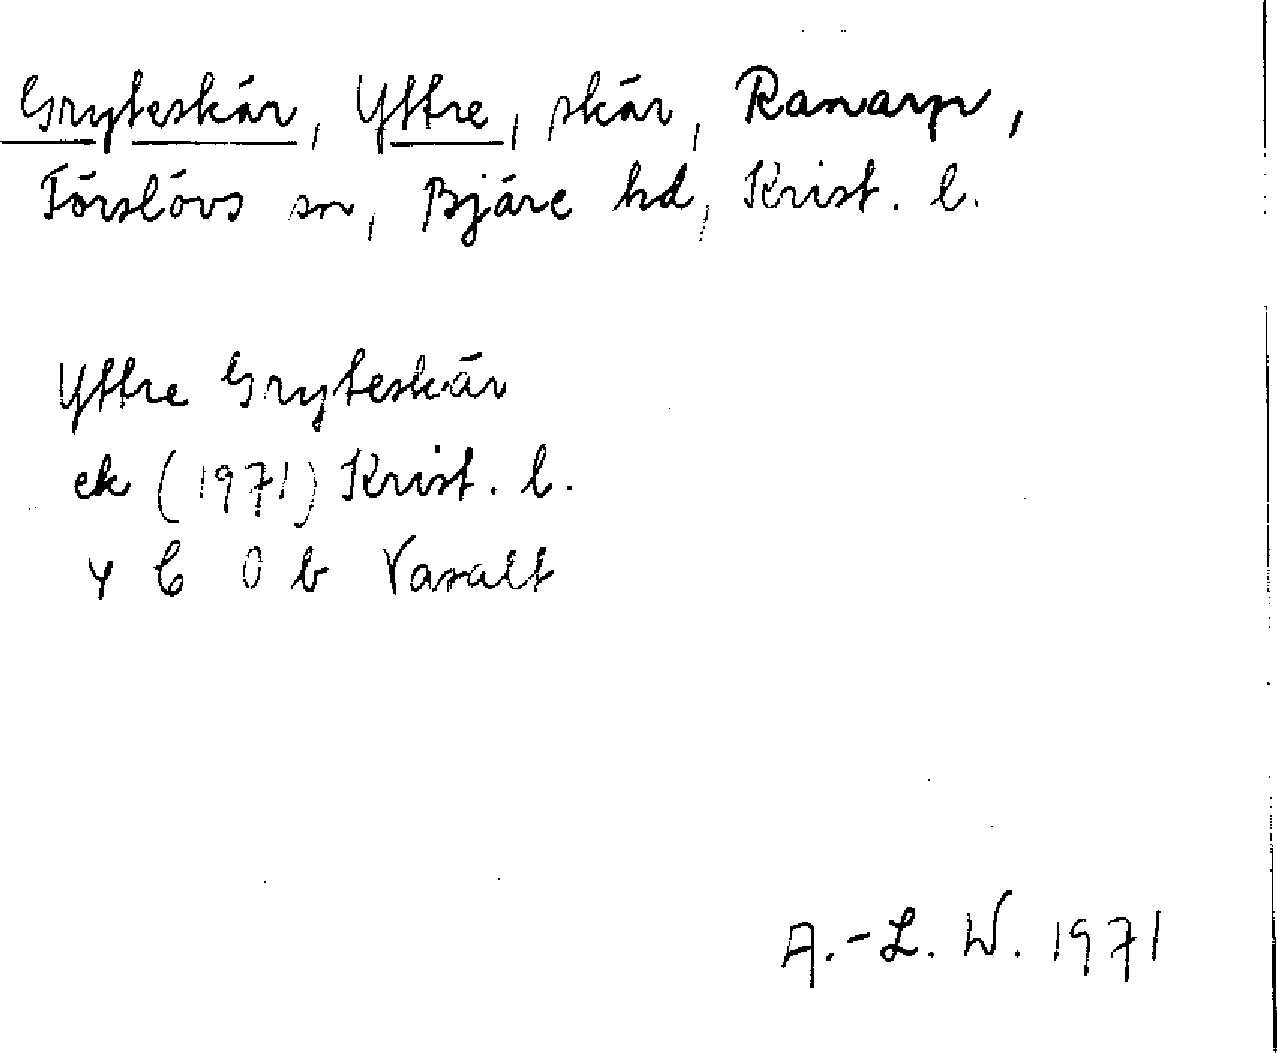 Gryteskär, Yttre, skär, Ranarp,
Förslövs sn, Bjäre hd, Krist. l.
Yttre Gryteskär
ek (1971) Krist. l.
4 C 0 b Vasalt
A.-L. W. 1971